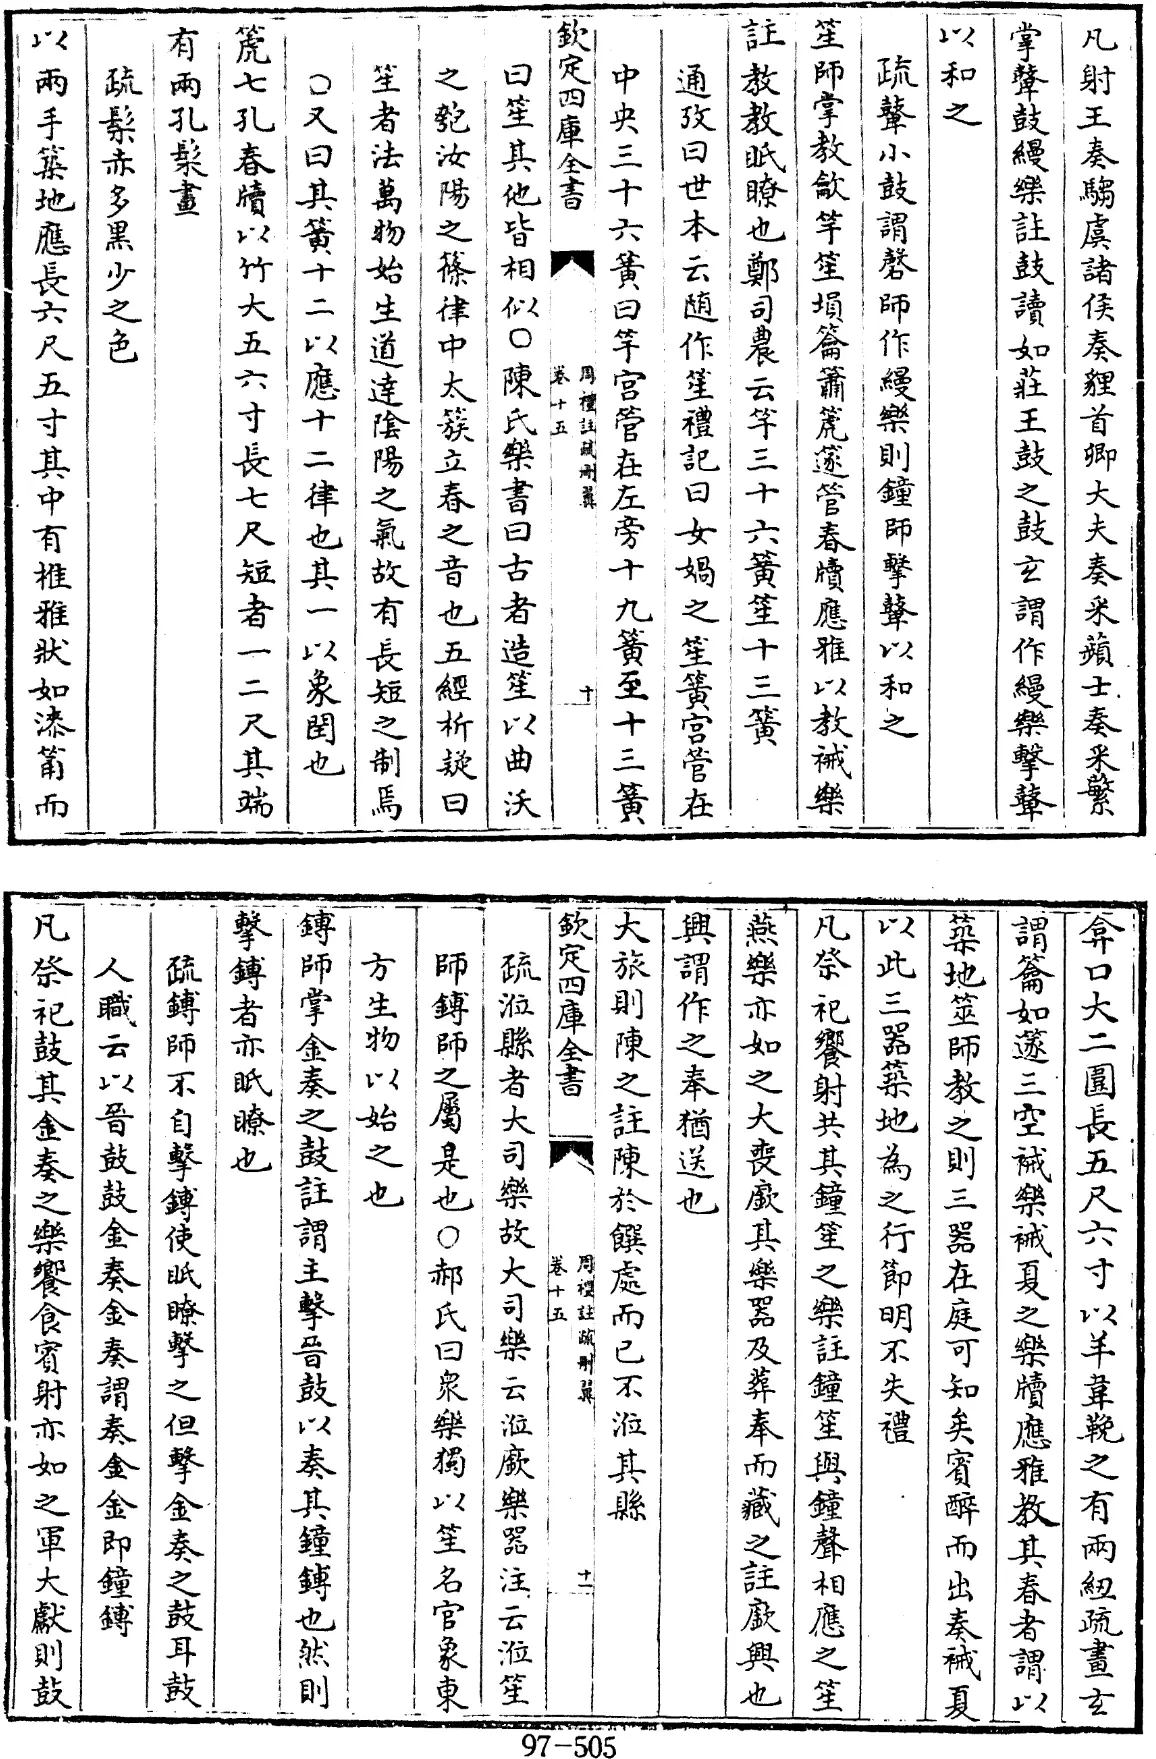 凡射王奏騶虞諸侯奏貍首卿大夫奏采蘋士奏采蘩
掌鼙鼓縵樂註鼓讀如莊王鼓之鼓玄謂作縵樂擊鼙
以和之
疏鼙小鼓謂磬師作縵樂則鐘師擊鼙以和之
笙師掌教龡竽笙塤籥簫篪篴管舂牘應雅以教祴樂
註教教眡瞭也鄭司農云竽三十六簧笙十三簧
通攷曰世本云随作笙禮記曰女媧之笙簧宫管在
中央三十六簧曰竽宫管在左旁十九簧至十三簧
欽定四庫全書
周禮註疏刪翼
卷十五
十
曰笙其他皆相似〇陳氏樂書曰古者造笙以曲沃
之匏汶陽之篠律中太簇立春之音也五經析疑曰
笙者法萬物始生道達陰陽之氣故有長短之制焉
〇又曰其簧十二以應十二律也其一以象閏也
篪七孔舂牘以竹大五六寸長七尺短者一二尺其端
有兩孔髹畫
疏髹赤多黒少之色
以兩手築地應長六尺五寸其中有椎雅狀如漆筩而
弇口大二圍長五尺六寸以羊韋鞔之有兩紐疏畫玄
謂籥如篴三空祴樂祴夏之樂牘應雅教其舂者謂以
築地笙師教之則三器在庭可知矣賓醉而出奏祴夏
以此三器築地為之行節明不失禮
凡祭祀饗射共其鐘笙之樂註鐘笙與鐘聲相應之笙
燕樂亦如之大喪廞其樂器及葬奉而藏之註廞興也
興謂作之奉猶送也
大旅則陳之註陳於饌處而已不涖其縣
欽定四庫全書
周禮註疏刪翼
卷十五
十一
疏涖縣者大司樂故大司樂云涖廞樂器注云涖笙
師鎛師之屬是也〇郝氏曰衆樂獨以笙名官象東
方生物以始之也
鎛師掌金奏之鼓註謂主擊晉鼓以奏其鐘鎛也然則
擊鎛者亦眡瞭也
疏鎛師不自擊鎛使眡瞭擊之但擊金奏之鼓耳鼓
人職云以晉鼓鼓金奏金奏謂奏金金即鐘鎛
凡祭祀鼓其金奏之樂饗食賓射亦如之軍大獻則鼓
97-505